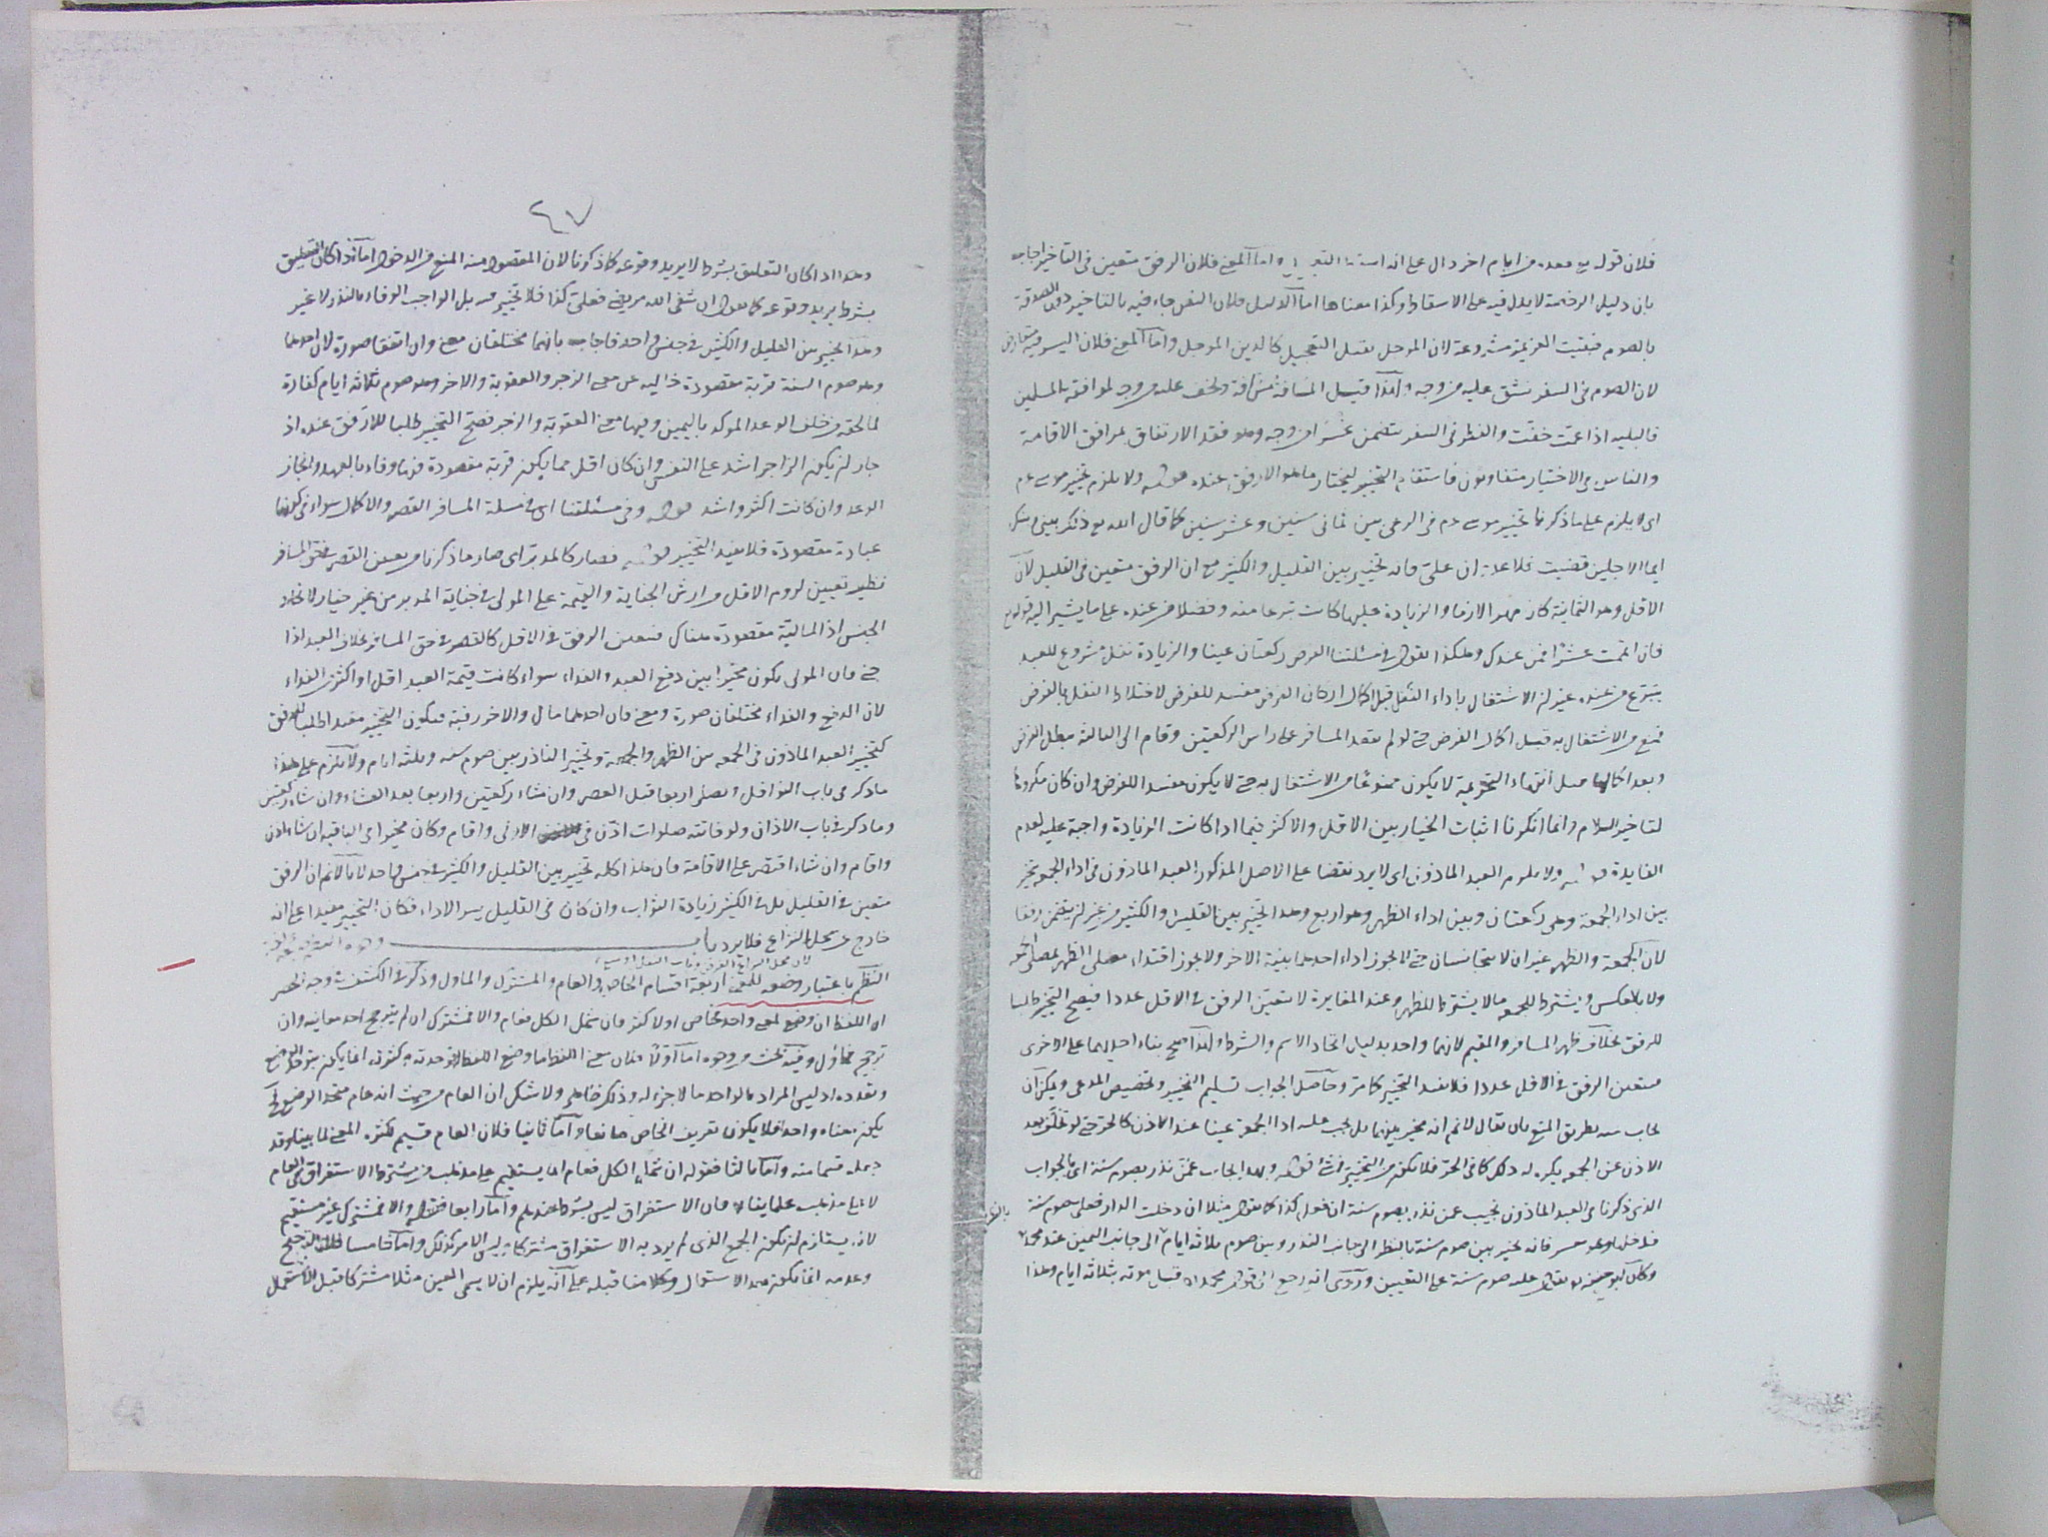 فلان قوله تع فعدة من ايام اخر دال على انه واما المعنى فلان الرفق متعين فى التاخير اجاب
بان دليل الرخصة لا يدل فيه على الاسقاط وكذا معناها اما الدليل فلان النص جاء فيه بالتاخير دون الصدقة
بالصوم فبقيت العزيمة مشروعة لان الموجل يقبل التعجيل كالدين الموجل واما المعنى فلان اليسر فيه متعارض
لان الصوم فى السفر يشق عليه من وجه ولهذا قيل المسافة مشاقة ويخف عليه من وجه لموافقة المسلمين
فالبلية اذا عمت خفت والفطر فى السفر يتضمن عسرا من وجه وهو فقد الارتفاق بمرافق الاقامة
والناس فى الاختيار متفاوتون فاستقام التخيير ليختار ما هو الارفق عنده قوله ولا يلزم تخيير موسى عم
اى لا يلزم على ما ذكرنا تخيير موسى عم فى الرعى بين ثمانى سنين وعشر سنين كما قال الله تع ذلك بينى وبينك
ايما الاجلين قضيت فلا عدوان على فانه تخيير بين القليل والكثير مع ان الرفق متعين فى القليل لان
الاقل وهو الثمانية كان مهرا لازما والزيادة عليها كانت تبرعا منه وفضلا من عنده على ما يشير اليه قوله تع
فان اتممت عشرا فمن عندك وهكذا نقول فى مسئلتنا الفرض ركعتان عينا والزيادة نفل مشروع للعبد
يتبرع من عنده غير ان الاشتغال باداء النفل قبل اكمال اركان الفرض مفسد للفرض لاختلاط النفل بالفرض
فمنع من الاشتغال به قبل اكمال الفرض حتى لو لم يقعد المسافر على راس الركعتين وقام الى الثالثة يبطل الفرض
وبعد اكمالها قبل انتهاء التحريمة لا يكون ممنوعا من الاشتغال به حتى لا يكون مفسدا للفرض وان كان مكروها
لتاخير السلام وانما انكرنا اثبات الخيار بين الاقل والاكثر فيما اذا كانت الزيادة واجبة عليه لعدم
الفايدة قوله ولا يلزم العبد الماذون اى لا يرد نقضا على الاصل المذكور العبد الماذون فى اداء الجمعة تخير
بين اداء الجمعة وهى ركعتان وبين اداء الظهر وهو اربع وهذا تخيير بين القليل والكثير من غير ان يتضمن رفقا
لان الجمعة والظهر غيران لا يتجانسان حتى لا يجوز اداء احدهما بنية الاخر ولا يجوز اقتداء مصلى الظهر بمصلى الجمعة
ولا بالعكس ويشترط للجمعة ما لا يشترط للظهر وعند المغايرة لا يتعين الرفق فى الاقل عددا فيصح التخيير طلبا
للرفق بخلاف ظهر المسافر والمقيم لانهما واحد بدليل اتحاد الاسم والشرط ولهذا صح بناء احديهما على الاخرى
فيتعين الرفق فى الاقل عددا فلا يفيد التخيير كما مر وحاصل الجواب تسليم التخيير وتخصيص المدعى ويمكن ان
يجاب عنه بطريق المنع بان يقال لا نم انه مخير بينهما بل يجب عليه اداء الجمعة عينا عند الاذن كالحر حتى لو تخلف بعد
الاذن عن الجمعة يكره له ذلك كما فى الحر فلا يكون من التخيير فى شئ قوله وبهذا يجاب عمن نذر بصوم سنة اى بالجواب
الذى ذكرنا فى العبد الماذون يجيب عمن نذر بصوم سنة ان فعل كذا كما يقول مثلا ان دخلت الدار فعلى صوم سنة
فدخل وهو معسر فانه يخير بين صوم سنة بالنظر الى جانب النذر وبين صوم ثلاثة ايام الى جانب اليمين عند محمد
وكان ابو حنيفة يقول عليه صوم سنة على التعيين وروى انه رجع الى قول محمد قبل موته بثلاثة ايام وهذا
٤٧
وهذا اذا كان التعليق بشرط لا يريد وقوعه كما ذكرنا لان المقصود منه المنع من الدخول اما اذا كان التعليق
بشرط يريد وقوعه كما يقول ان شفى الله مريضى فعلى كذا فلا تخيير فيه بل الواجب الوفاء بالنذر لا غير
وهذا تخيير بين القليل والكثير فى جنس واحد فاجاب بانهما مختلفان معنى وان اتفقا صورة لان احدهما
وهو صوم السنة قربة مقصودة خالية عن معنى الزجر والعقوبة والاخر وهو صوم ثلاثة ايام كفارة
لما لحقه من خلف الوعد الموكد باليمين وفيها معنى العقوبة والزجر فصح التخيير طلبا للارفق عنده اذ
جاز ان يكون الزاجر اشد على النفس وان كان اقل مما يكون قربة مقصودة فيها وفاء بالعهد وانجاز
الوعد وان كانت اكثر واشد قوله وفى مسئلتنا اى فى مسئلة المسافر القصر والاكمال سواء فى كونهما
عبادة مقصودة فلا يفيد التخيير قوله فصار كالمدبر اى صار ما ذكرنا من تعين القصر فى حق المسافر
نظير تعيين لزوم الاقل من ارش الجناية والقيمة على المولى فى جناية المدبر من غير خيار لاتحاد
الجنس اذ المالية مقصودة هناك فتعين الرفق فى الاقل كالقصر فى حق المسافر بخلاف العبد اذا
جنى فان المولى يكون مخيرا بين دفع العبد والفداء سواء كانت قيمة العبد اقل او اكثر من الفداء
لان الدفع والفداء مختلفان صورة ومعنى فان احدهما مال والاخر رقبة فيكون التخيير مفيدا طلبا للرفق
كتخيير العبد الماذون فى الجمعة بين الظهر والجمعة وتخيير الناذر بين صوم سنة وثلثة ايام ولا يلزم على هذا
ما ذكر فى باب النوافل ويصلى اربعا قبل العصر وان شاء ركعتين واربعا بعد العشاء وان شاء ركعتين
وما ذكر فى باب الاذان ولو فاتته صلوات اذن فى الاولى واقام وكان مخيرا فى الباقية ان شاء اذن
واقام وان شاء اقتصر على الاقامة فان هذا كله تخيير بين القليل والكثير فى جنس واحد لانا لا نم ان الرفق
متعين فى القليل بل فى الكثير زيادة الثواب وان كان فى القليل يسر الاداء فكان التخيير مفيدا على انه
خارج عن محل النزاع فلا يرد
النظم باعتبار وضعه للمعنى اربعة اقسام الخاص والعام والمشترك والماول وذكر فى الكشف فى وجه الحصر
ان اللفظ ان وضع لمعنى واحد فخاص او لاكثر فان شمل الكل فعام والا فمشترك ان لم يترجح احد معانيه وان
ترجح فماؤل وفيه بحث من وجوه اما اولا فلان معنى اللفظ ما وضع اللفظ له وحدته وكثرته انما يكون بتوحد الوضع
وتعدده اذ ليس المراد بالواحد ما لا جزء له وذلك ظاهر ولا شك ان العام من حيث انه عام متحد الوضع
يكون معناه واحدا فلا يكون تعريف الخاص مانعا واما ثانيا فلان العام قسيم لكثرة المعنى لما بينا وقد
جعله قسما منه واما ثالثا فقوله ان شمل الكل فعام انما يستقيم على مذهب من يشترط الاستغراق فى العام
لا على مذهب علماينا فان الاستغراق ليس بشرط عندهم واما رابعا فقوله والا فمشترك غير مستقيم
لانه يستلزم ان يكون الجمع الذى لم يرد به الاستغراق مشتركا وليس الامر كذلك واما خامسا فلان الترجيح
وعدمه انما يكون بعد الاستعمال وكلامنا قبله على انه يلزم ان لا يسمى العين مثلا مشتركا قبل الاستعمال